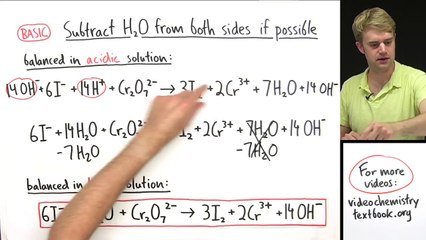 BASIC Subtract H₂O from both sides if possible
balanced in acidic solution:
14OH⁻ + 6I⁻ + 14H⁺ + Cr₂O₇²⁻ → 3I₂ + 2Cr³⁺ + 7H₂O + 14OH⁻
6I⁻ + 14H₂O + Cr₂O₇ I₂ + 2Cr³⁺ + 7H₂O + 14OH⁻
-7H₂O -7H₂O
balanced in solution:
6I⁻ O + Cr₂O₇²⁻ → 3I₂ + 2Cr³⁺ + 14OH⁻
For more
videos:
videochemistry
textbook.org